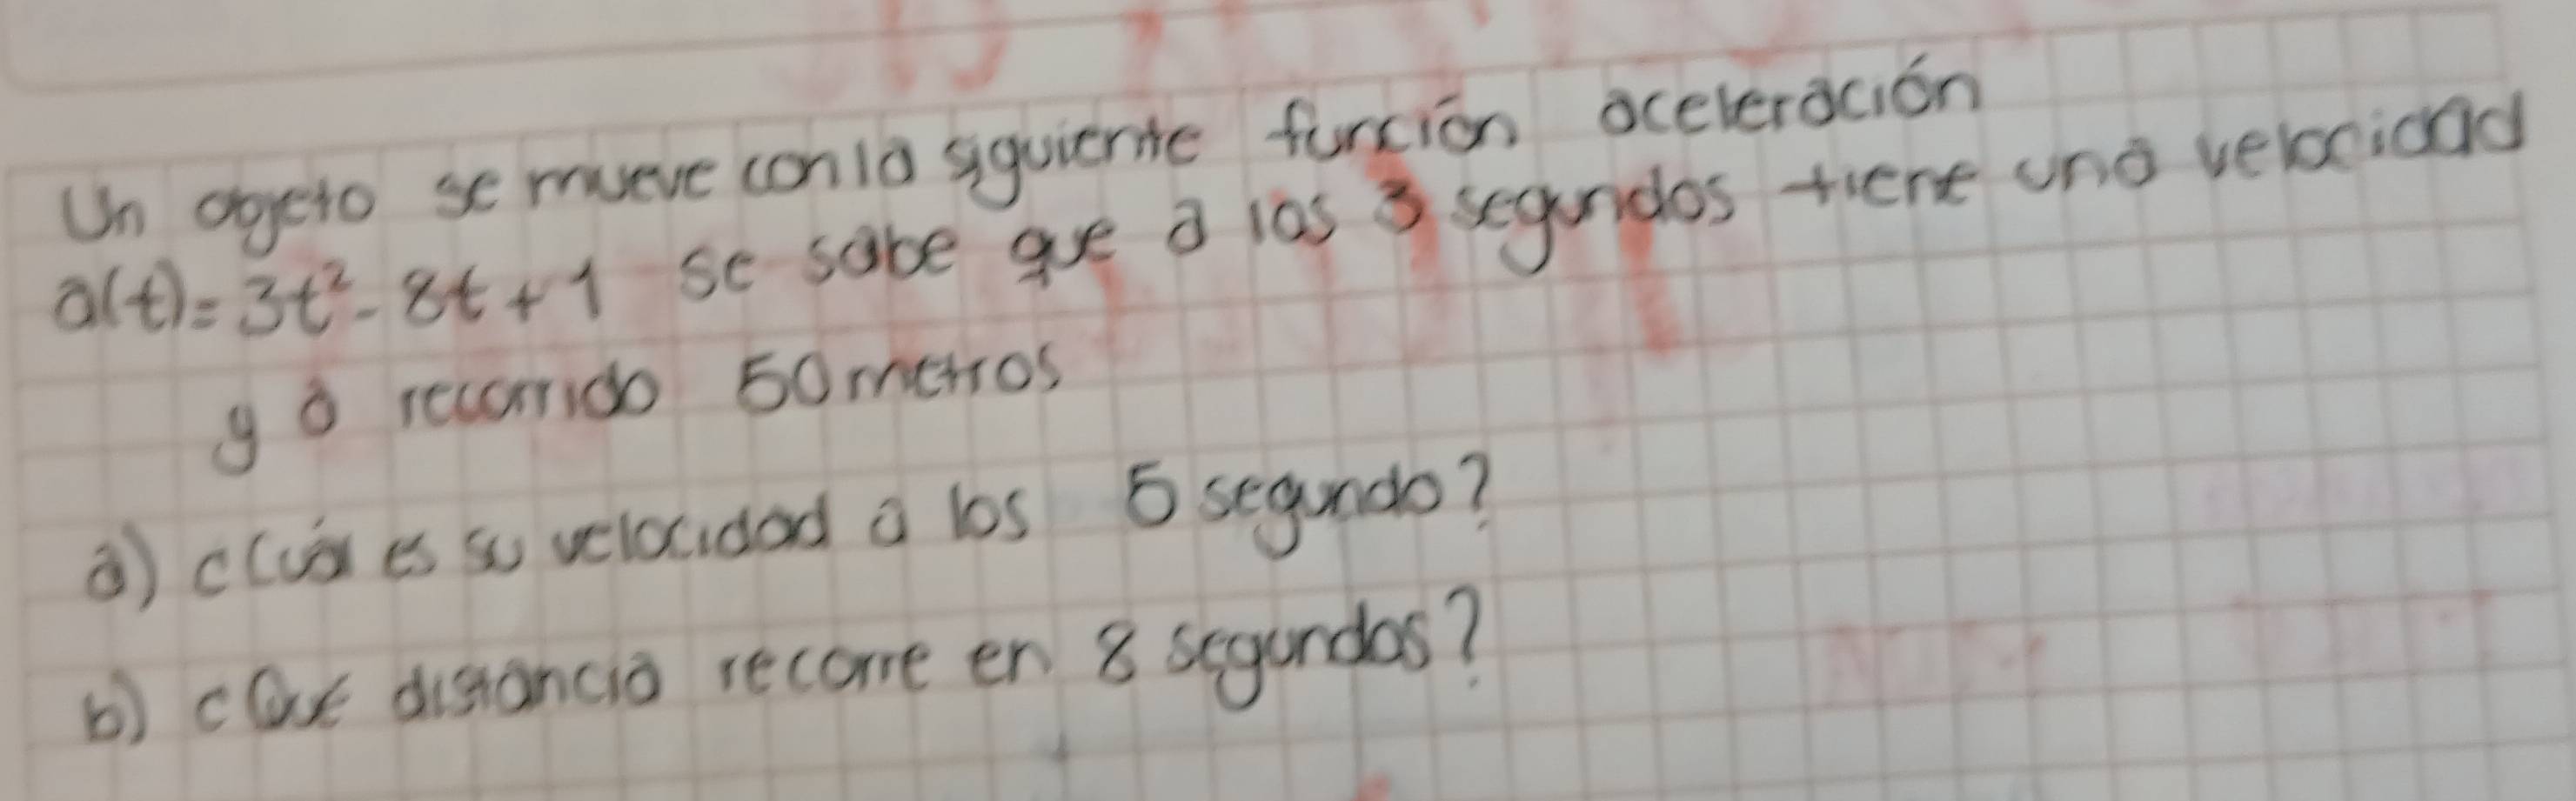 Un objeto se mueve con la siguiente función aceleración
a(t)=3t²-8t+1 se sabe que a los 3 segundos tiene una velocidad
y a recorrido 50 metros
a) ¿Cuál es su velocidad a los 5 segundo?
b) ¿Qué distancia recorre en 8 segundos?